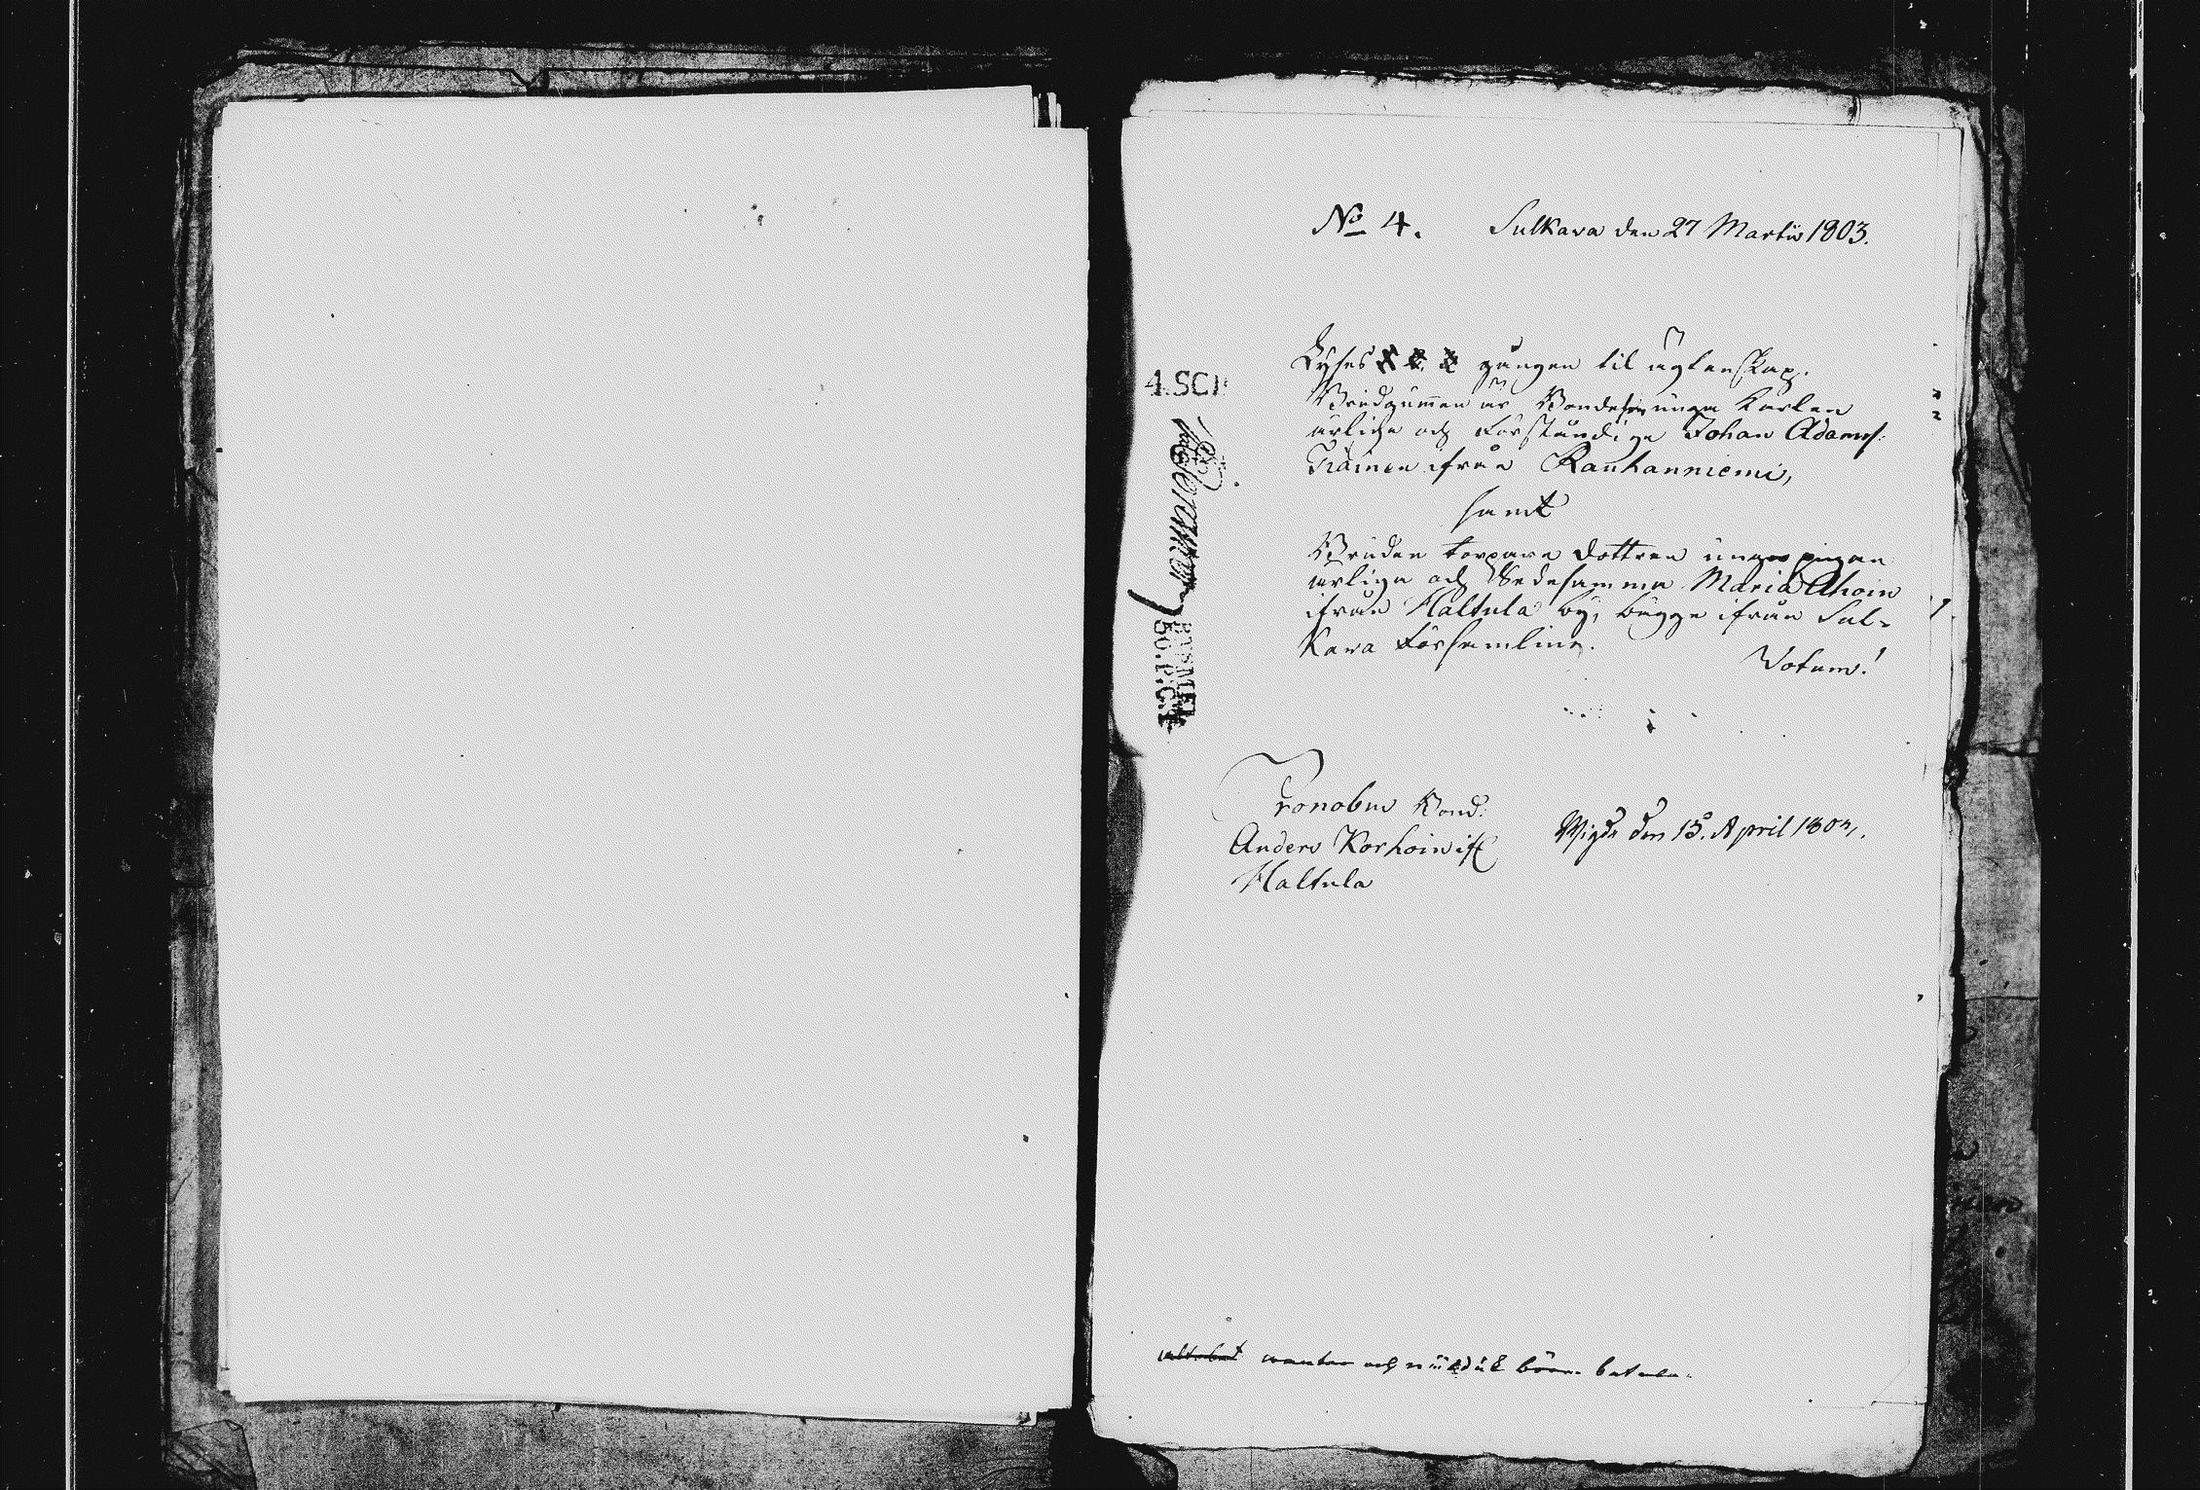 No 4. Sulkava den 27 Martii 1803.
Lyses gången til ägtenskap.
Brudgummen är Bondeson unga Karlen
ärlige och Förståndige Johan Adamss:
ifrån Rauhanniemi,
samt
Bruden torpare dottren unga pigan
ärliga och Sedesamma Maria Ahoin
ifrån Haltula by, bägge ifrån Sul-
kava Församling.
Votum!
4.SC
Pronobus Bond:
Anders Korhoin if
Haltula
Wigde den 15. April 1803.
och